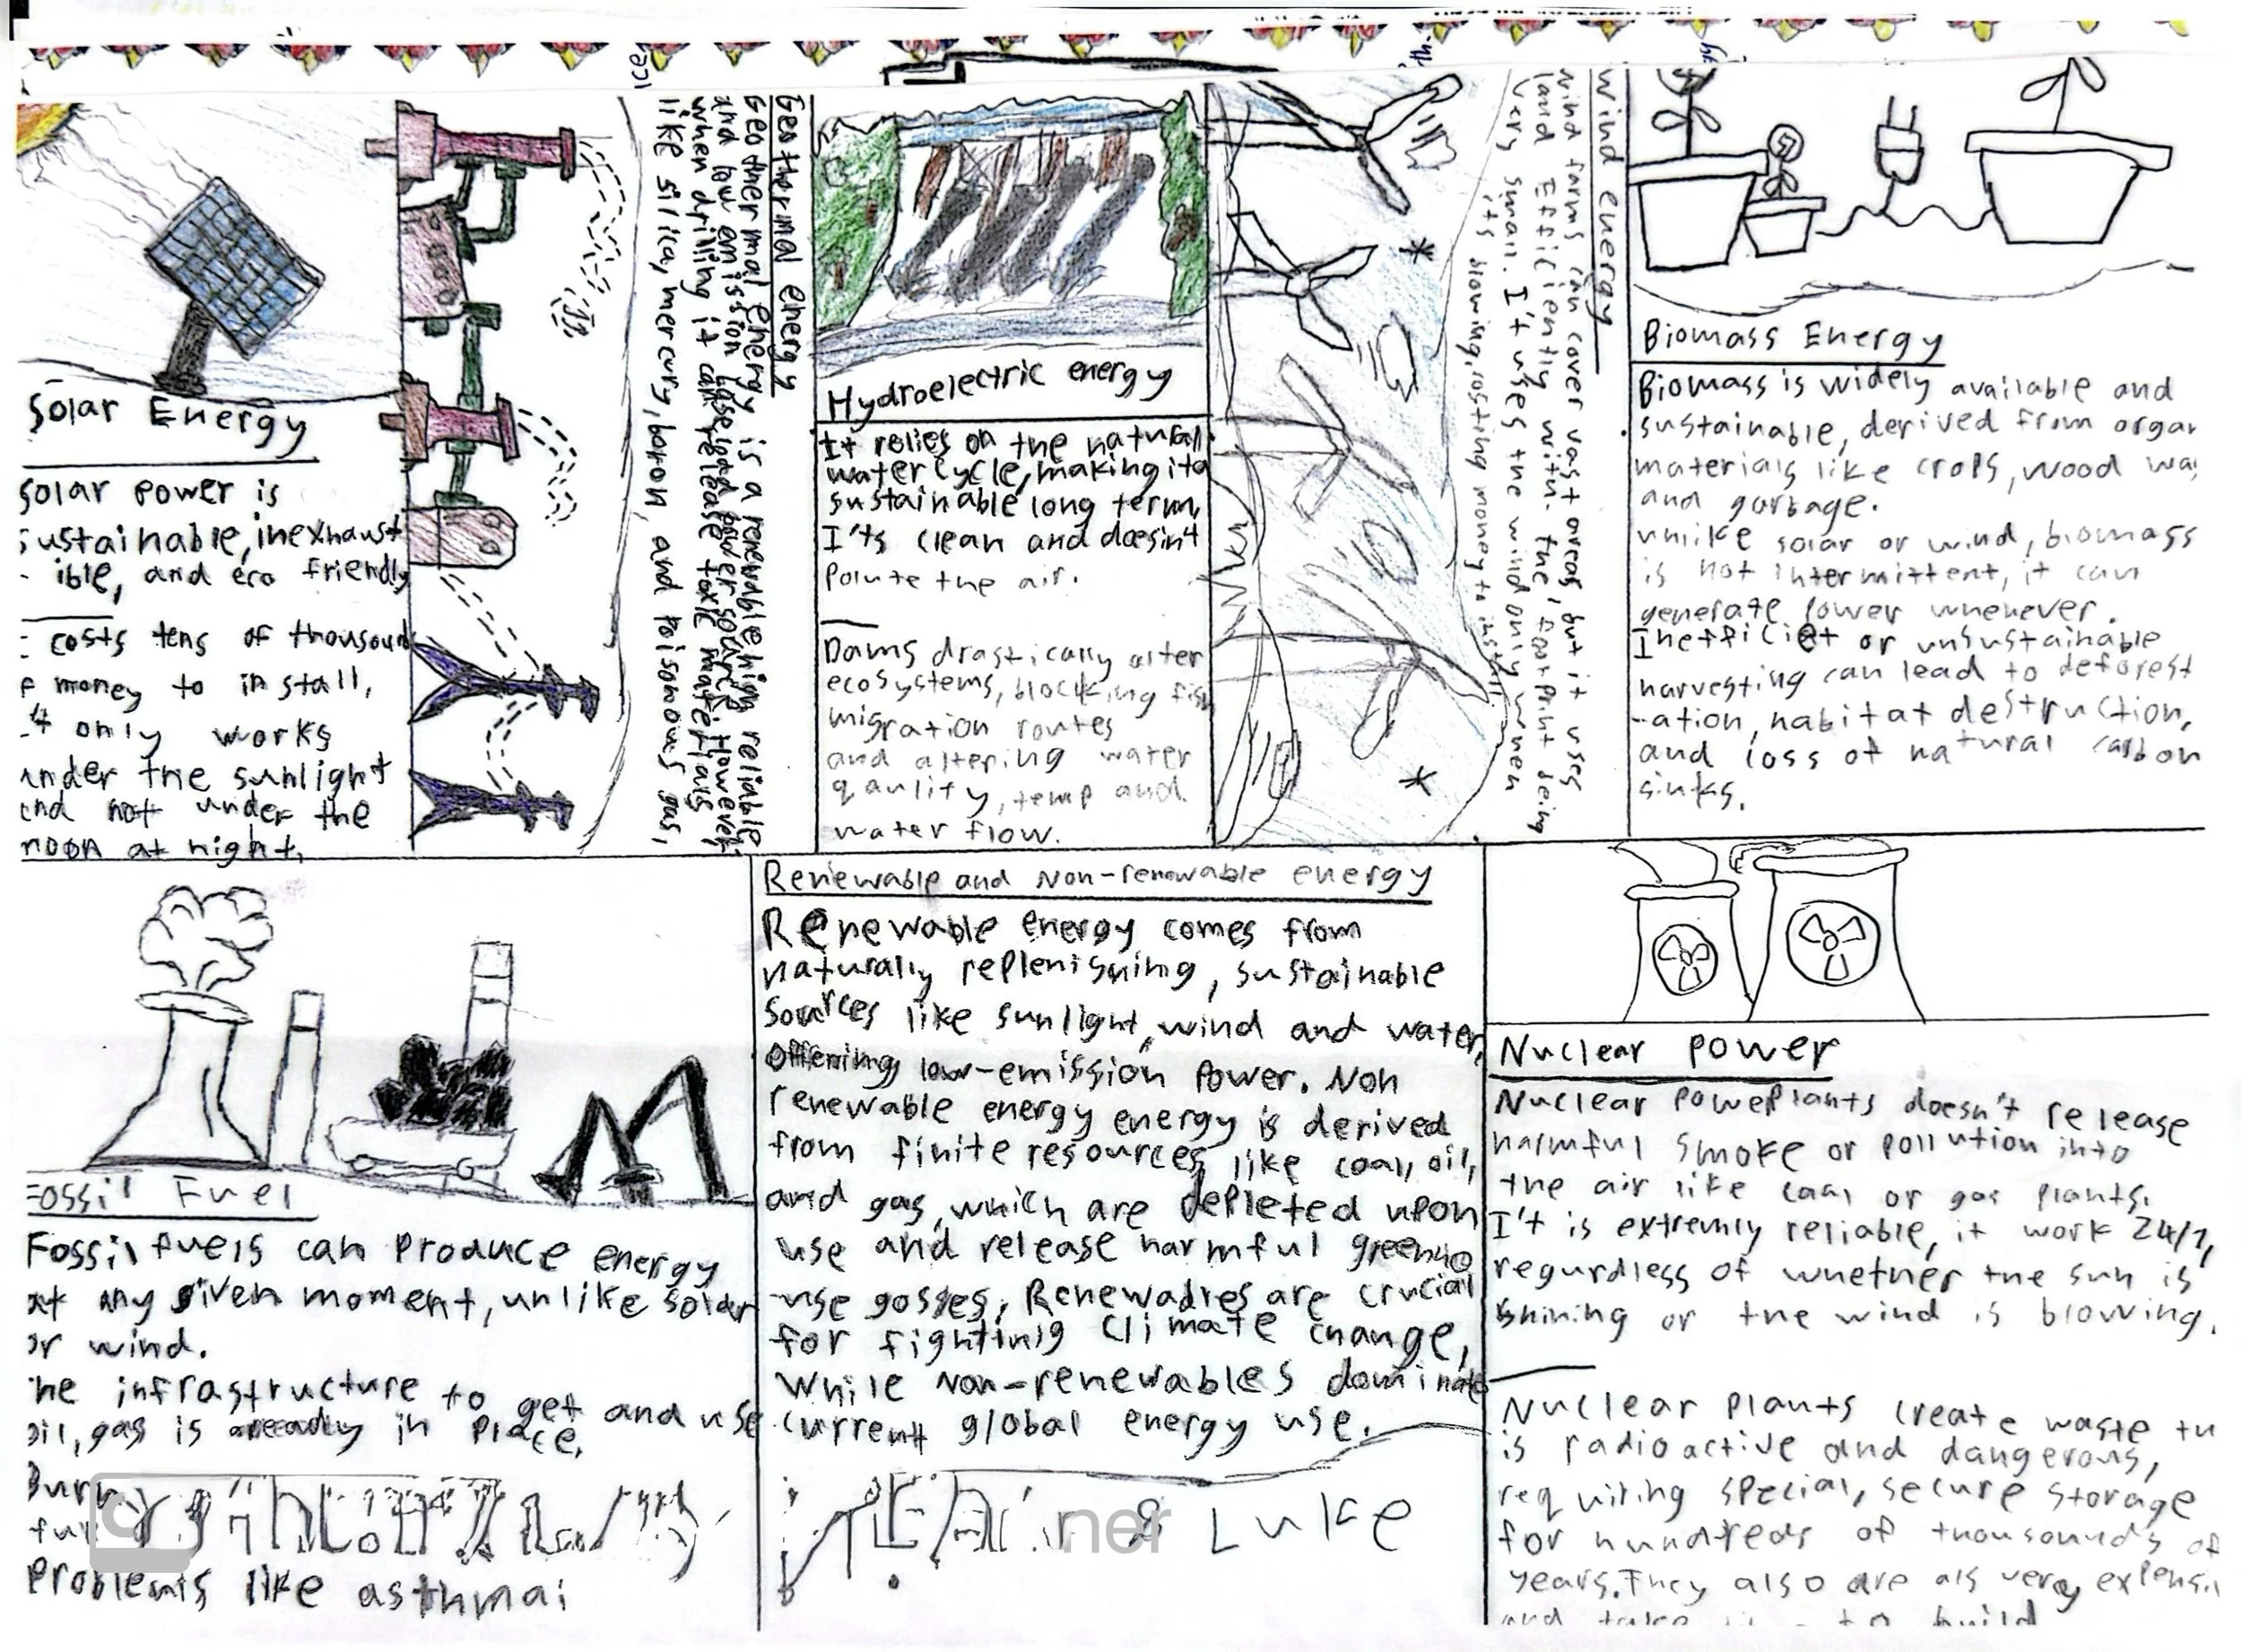 Solar Energy
Solar power is
sustainable, inexhaust
- ible, and eco friendly
costs tens of thousand
money to install,
only works
under the sunlight
and not under the
moon at night.
Geothermal energy
Geothermal energy is a renewable high reliable
and low emission base load power source. However
when drilling it can release toxic materials
like silica, mercury, boron, and poisonous gas,
Hydroelectric energy
It relies on the natural
water cycle, making it a
sustainable long term.
I'ts clean and doesin't
Polute the air.
Dams drastically alter
ecosystems, blocking fish
migration routes
and altering water
qaulity, temp and
water flow.
Wind energy
Wind farms can cover vast areas, but it uses
land Efficiently with the footprint being
very small. I't uses the wind only when
it's blowing, costing money to install
Biomass Energy
Biomass is widely available and
sustainable, derived from organ
materials like crops, wood wa
and garbage.
unlike solar or wind, biomass
is not intermittent, it can
generate power whenever.
Inefficiet or unsustainable
harvesting can lead to deforest
-ation, habitat destruction,
and loss of natural carbon
sinks.
Fossil Fuel
Fossil fuels can Produce energy
at any given moment, unlike solar
or wind.
he infrastructure to get and use
oil, gas is already in place.
Burn
fu
Problems like asthma
Renewable and Non-renewable energy
Renewable energy comes from
naturally replenishing, sustainable
sources like sunlight, wind and water,
offering low-emission Power. Non
renewable energy energy is derived
from finite resources like coal, oil,
and gas, which are depleted upon
use and release harmful greenho
-use gasses. Renewables are crucial
for fighting climate change,
while Non-renewables dominate
current global energy use.
ner & Luke
Nuclear power
Nuclear powePlants doesn't release
harmful smoke or pollution into
the air like coal or gas plants.
I't is extremly reliable, it work 24/7,
regardless of whether the sun is
shining or the wind is blowing.
Nuclear Plants create waste th
is radioactive and dangerous,
requiring special, secure storage
for hundreds of thousounds of
years. They also are als very expensi
and take to build